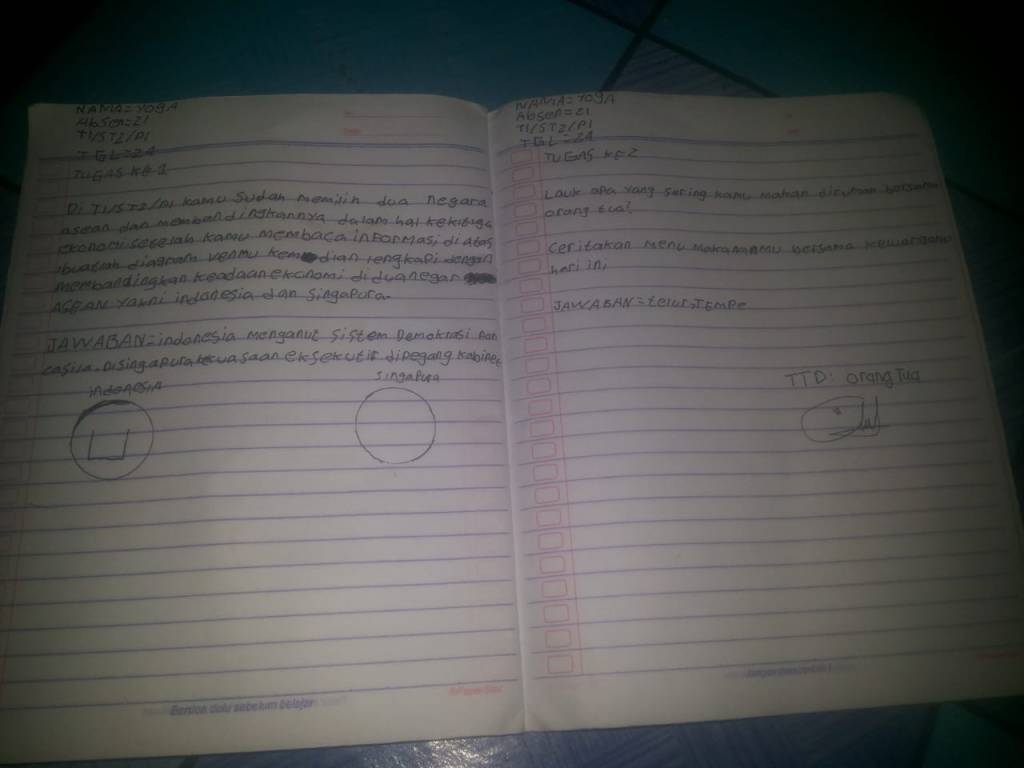 NAMA=YOGA
Absen=21
T1/ST2/P1
TGL=24
TUGAS KE 1
Di T1/ST2/P1 kamu sudah memilih dua negara
asean dan membandingkannya dalam hal
ekonomi setelah kamu membaca informasi di atas
buatlah diagram venmu kem dian lengkapi dengan
membandingkan keadaan ekonomi di dua negar
ASEAN yakni indonesia dan singapura.
JAWABAN=indonesia menganut sistem Demokrasi Pan
casila. Disingapura kekuasaan eksekutif dipegang kabinet
indonesia
singapura
Berdoa dulu sebelum belajar
NAMA=YOGA
Absen=21
T1/ST2/P1
TGL=24
TUGAS KE2
Lauk apa yang sering kamu makan dirumah bersama
orang tua?
Ceritakan menu makananmu bersama keluargamu
hari ini,
JAWABAN=telur,TEMPE
TTD: orang Tua